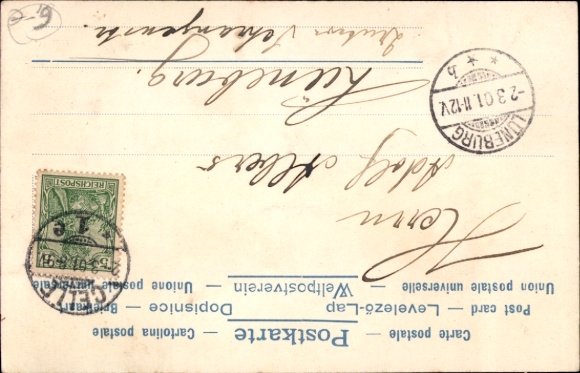 Carte postale — Cartolina postale
Postkarte
Post card — Levelező-Lap — Dopisnice — Briefkaart
Weltpostverein
Union postale universelle — Unione postale universale
REICHSPOST
5
CELLE
1 c
2 3 01. 8-9V
Herrn
Adolf Albers
Lüneburg.
LÜNEBURG
-2.3.01. 11-12V.
* h *
6